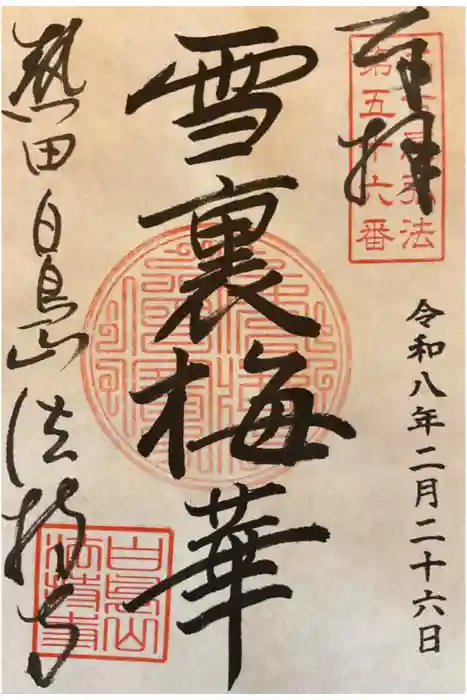 奉拝
第五十六番
令和八年二月二十六日
雪裏梅華
熱田白鳥山法持寺
白鳥山
法持寺